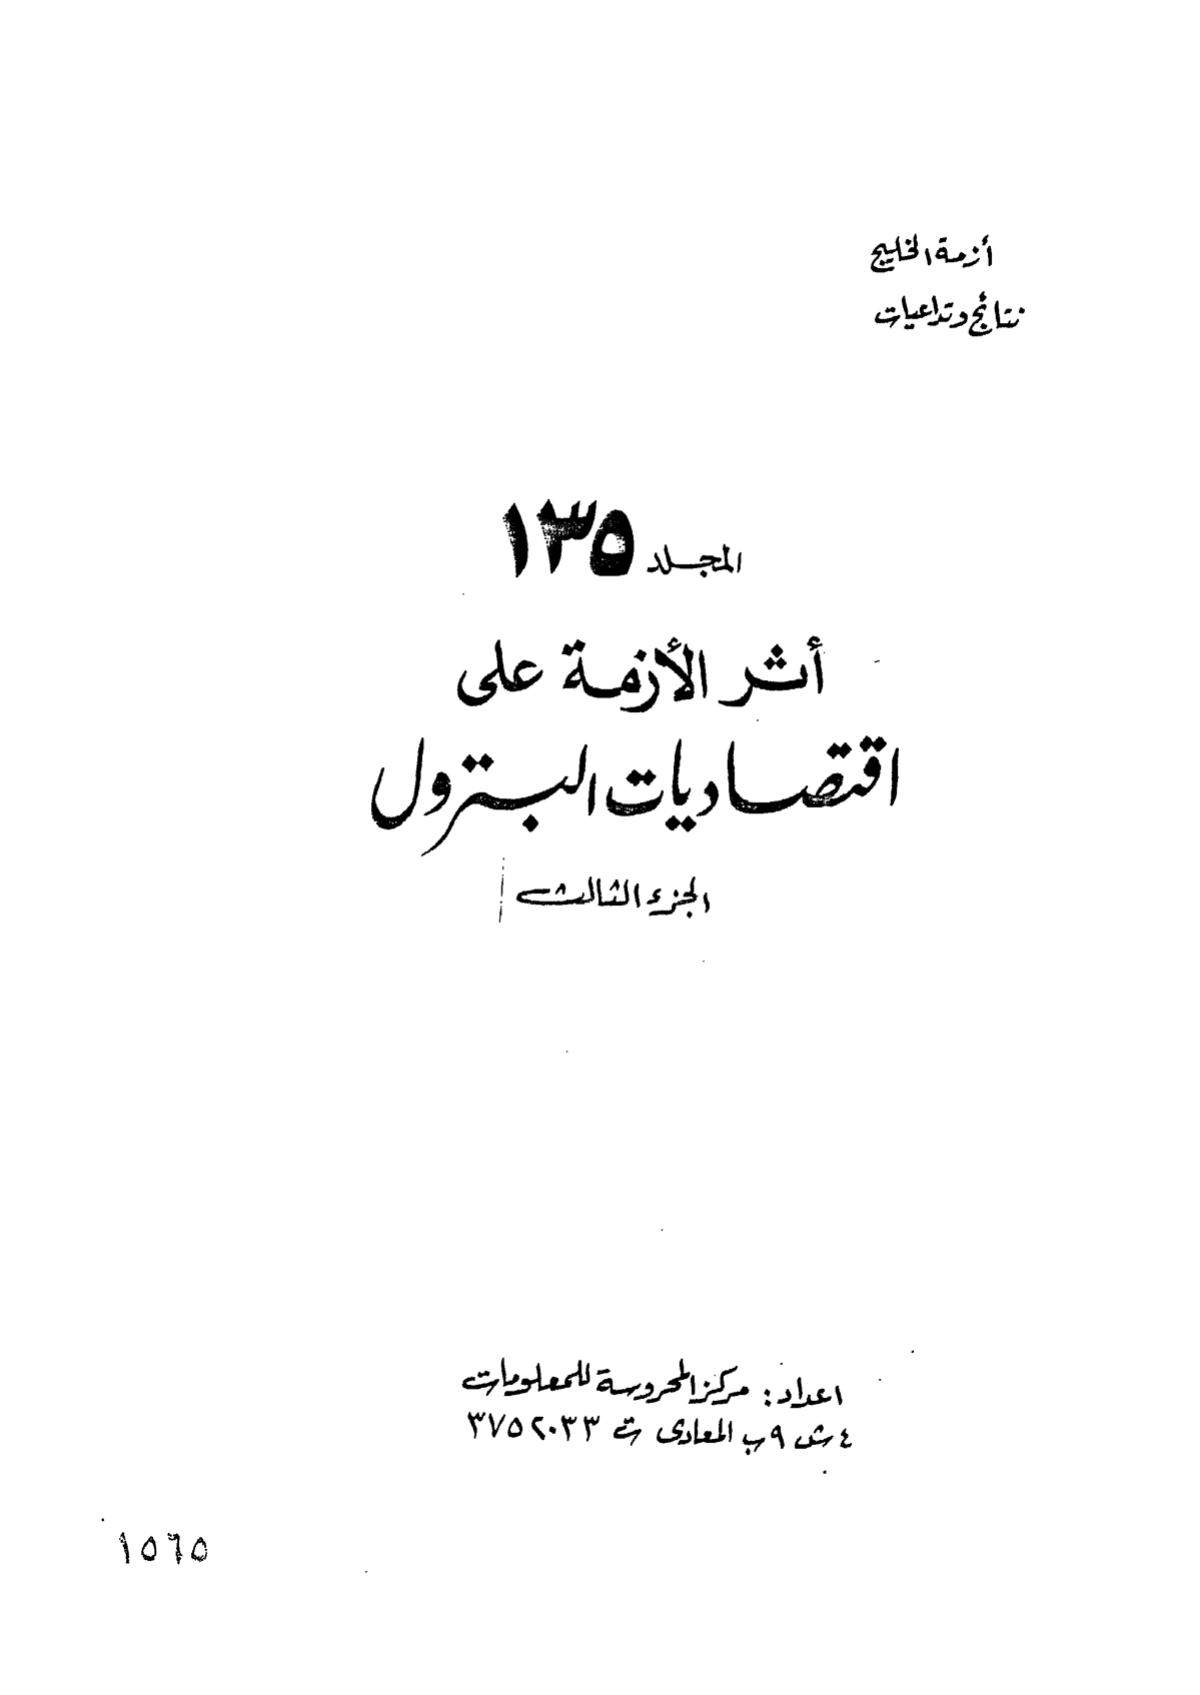 أزمة الخليج
نتائج وتداعيات
المجلد ١٣٥
أثر الأزمة على
اقتصاديات البترول
الجزء الثالث
اعداد: مركز المحروسة للمعلومات
٤ ش ٩ب المعادى ت ٣٧٥٢٠٣٣
١٥٦٥